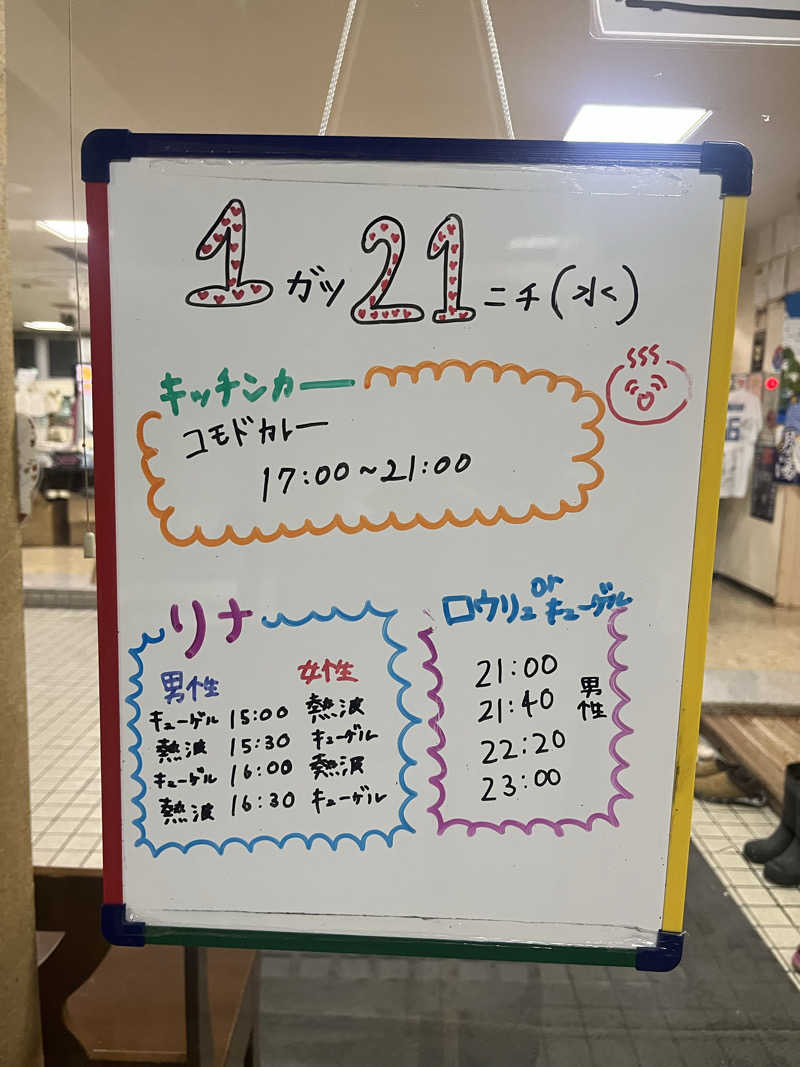 1ガツ21ニチ(水)
キッチンカー
コモドカレー
17:00~21:00
リナ
男性 女性
キューゲル 15:00 熱波
熱波 15:30 キューゲル
キューゲル 16:00 熱波
熱波 16:30 キューゲル
ロウリュ or キューゲル
21:00
21:40
22:20
23:00
男性